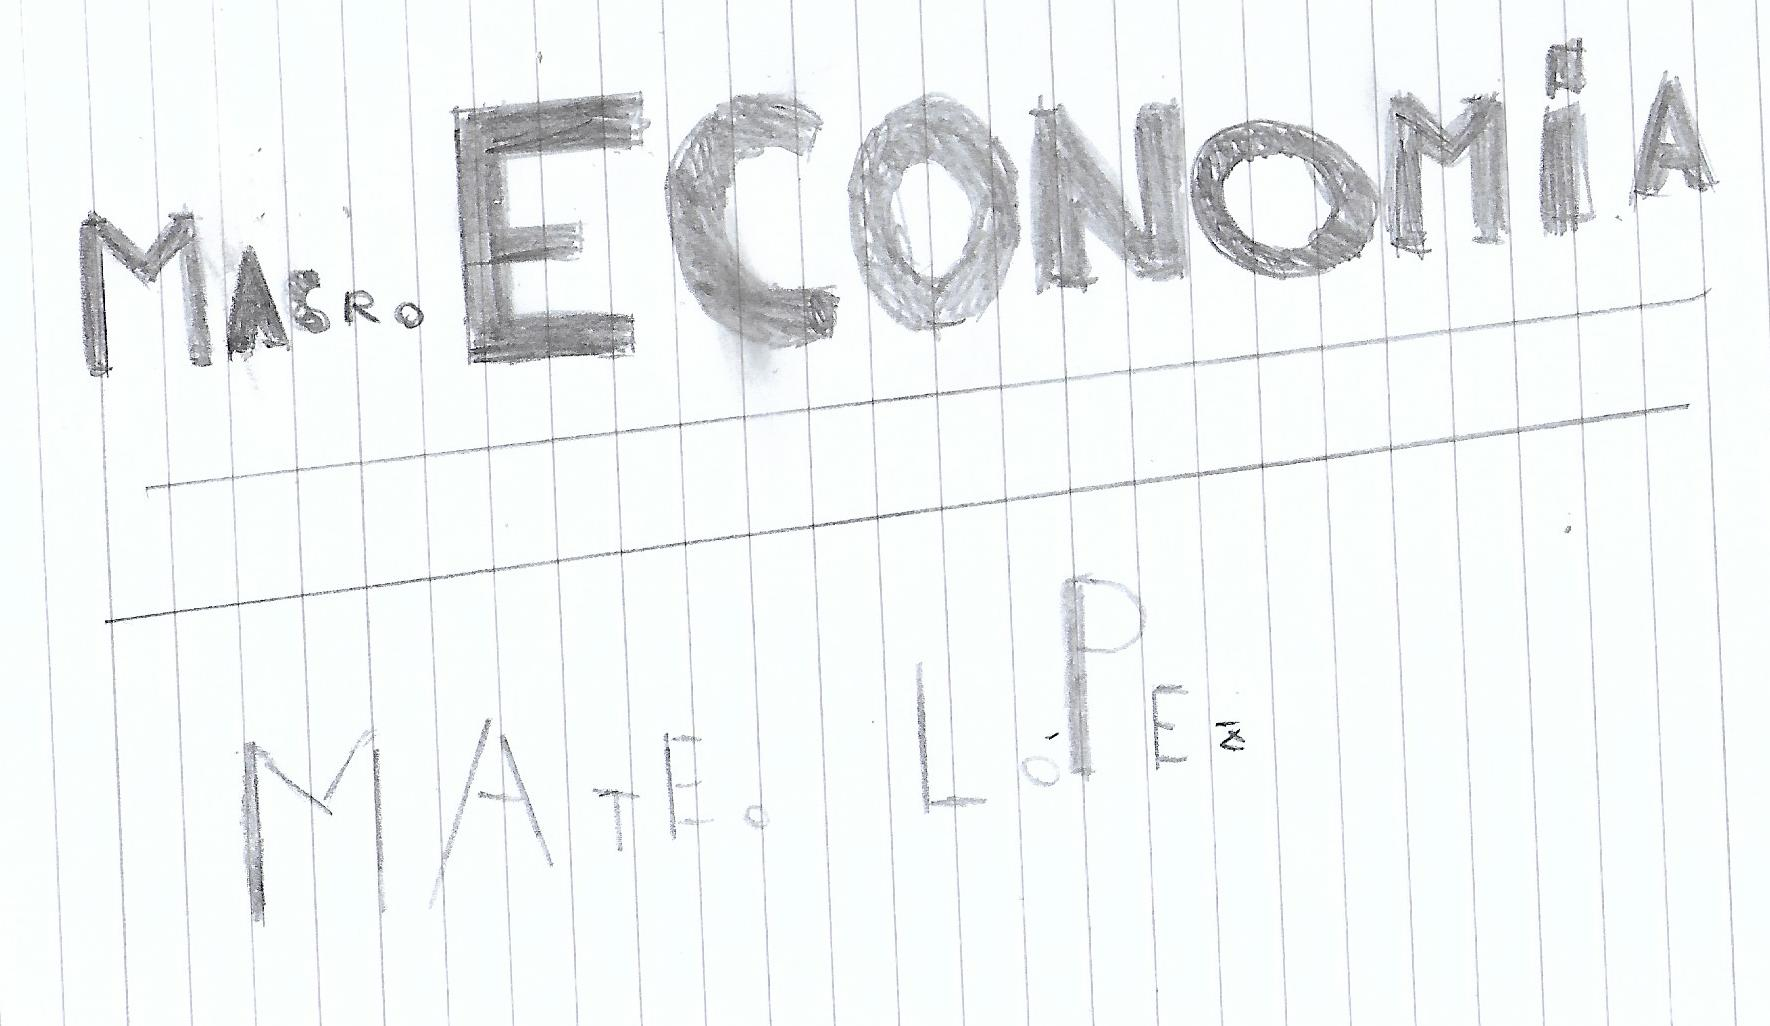 MACRO ECONOMÍA
MATEO LÓPEZ